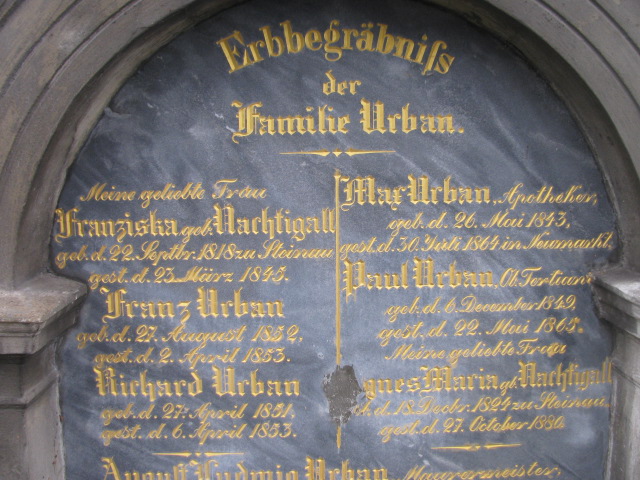 Erbbegräbniſs
der
Familie Urban.
Meine geliebte Frau
Franziska, geb. Nachtigall
geb. d. 22. Septbr. 1818 zu Steinau
gest. d. 23. März 1845.
Franz Urban
geb. d. 27. August 1852,
gest. d. 2. April 1853.
Richard Urban
geb. d. 27. April 1851,
gest. d. 6. April 1853.
Max Urban, Apotheker,
geb. d. 26. Mai 1843,
gest. d. 30. Juli 1864 in Neumarkt.
Paul Urban, Ob. Tertianer
geb. d. 6. December 1849
gest. d. 22. Mai 1865.
Meine geliebte Frau
gnes Maria gb. Nachtigall
d. 18. Decbr. 1824 zu Steinau
gest. d. 27. October 1880.
August Ludwig Urban Maurermeister,